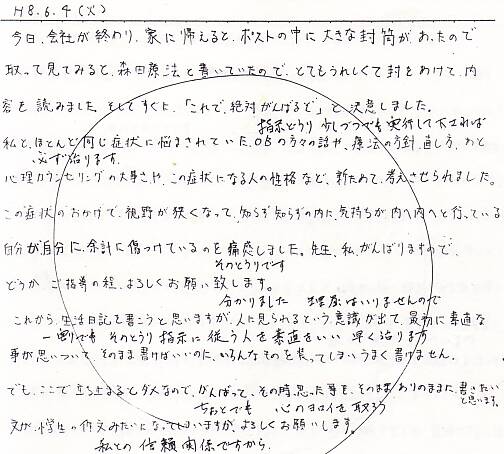 H8.6.4(火)
今日、会社が終わり、家に帰えると、ポストの中に大きな封筒があったので
取って見てみると、森田療法と書いていたので、とてもうれしくて封をあけて、内
容を読みました。そしてすぐに、「これで、絶対がんばるぞ」と決意しました。
指示どうり 少しづつでも実行して下されば
私と、ほとんど同じ症状に悩まされていた、OBの方々の話や、療法の方針、直し方、あと
必ず治ります
心理カウンセリングの大事さや、この症状になる人の性格など、新ためて、考えさせられました。
この症状のおかげで、視野が狭くなって、知らず知らずの内に、気持ちが内へ内へと行っている
自分が自分に、余計に傷つけているのを痛感しました。先生、私、がんばりますので、
そのとうりです
どうか、ご指導の程、よろしくお願い致します。
分かりました
これから、生活日記を書こうと思いますが、人に見られるという意識が出て、最初に素直な
一割でも そのとうり 指示に従う人を素直といい 早く治ります
事が思いついて、そのまま書けばいいのに、いろんなそのを装ってしまいうまく書けません。
でも、ここで立ち止まるとダメなので、がんばって、その時思った事を、そのままありのままに、書いたい
と思います。
ちょとでも 心の
文が、小学生の作文みたいになってしまいますが、よろしくお願いします。
私との信頼関係ですから、